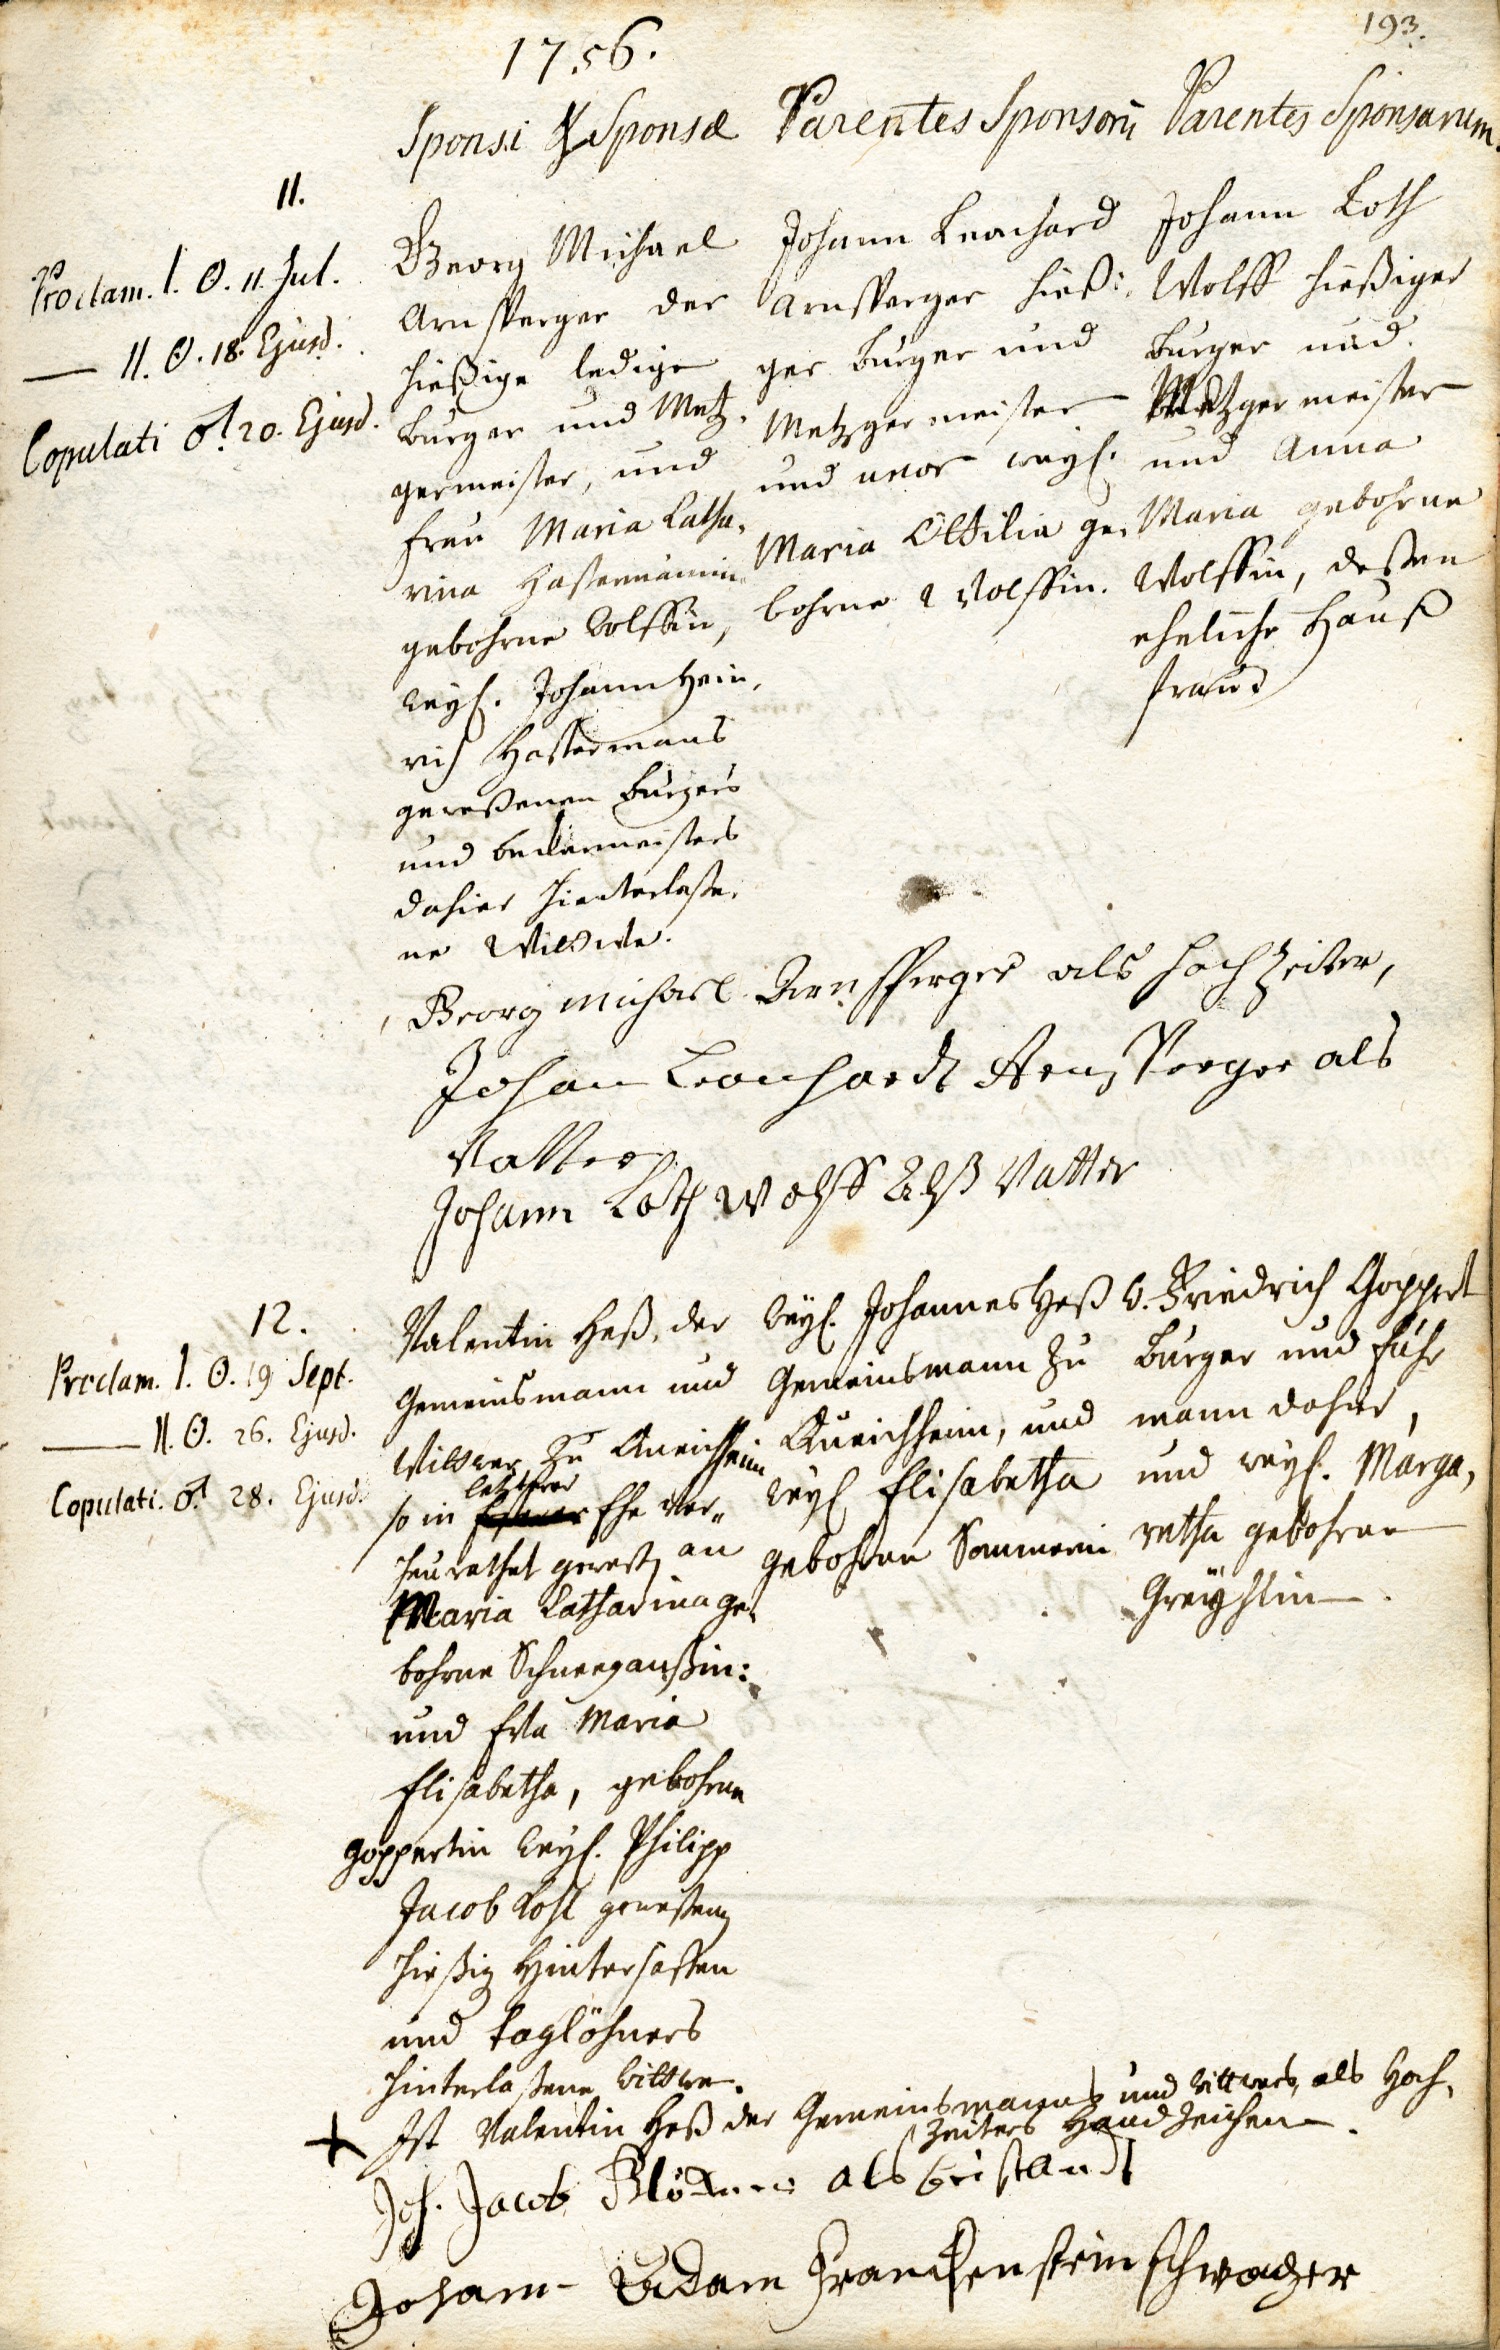 193.
1756.
Sponsi & Sponsæ
Parentes Sponsorū
Parentes Sponsarum.
11.
Proclam. I. ☉. 11. Jul.
— II. ☉. 18. Ejusd.
Copulati ♂. 20. Ejusd.
Georg Michael
Arnsperger der
hießige ledige
burger und Metz-
germeister, und
Frau Maria Catha-
rina Hastermännin
gebohrne Wolffin,
weyl. Johann Hein-
rich Hastermans
geweßenen burgers
und beckermeisters
dahier hinterlaße-
ne Wittwe.
Johann Leonhard
Arnsperger hießi-
ger burger und
Metzgermeister
und uxor weyl.
Maria Ottilia ge-
bohrne Wolffin.
Johann Loth
Wolff hießiger
burger und
Metzgermeister
und Anna
Maria gebohrne
Wolffin, deßen
eheliche Hauß
frau
Georg Michael Arnsperger als hochzeiter,
Johan Leonhardt Arnsperger als
Vatter
Johann Loth Wolff Alß Vatter
12.
Proclam. I. ☉. 19 Sept.
— II. ☉. 26. Ejusd.
Copulati. ♂. 28. Ejusd.
Valentin Heß, der
Gemeinsmann und
Wittwer zu Queichheim
letzterer
so in Ehe ver-
heurathet geweß. an
Maria Catharina ge-
bohrne Schneeganßin:
und Eva Maria
Elisabetha, gebohrne
Goppertin weyl. Philipp
Jacob Kohl geweßenen
hießig Hintersaßen
und taglöhners
hinterlaßene wittwe.
weyl. Johannes Heß
Gemeinsmann zu
Queichheim, und
weyl. Elisabetha
gebohrne Sommerin
Friedrich Goppert
burger und fuhr
mann dahier,
und weyl. Marga-
retha gebohrne
Greÿhlin
+ Ist Valentin Heß der Gemeinsmanns und wittwers, als Hoch-
zeiters Handzeichen.
Joh. Jacob als beistandt
Johann Adam Franckenstein schwager